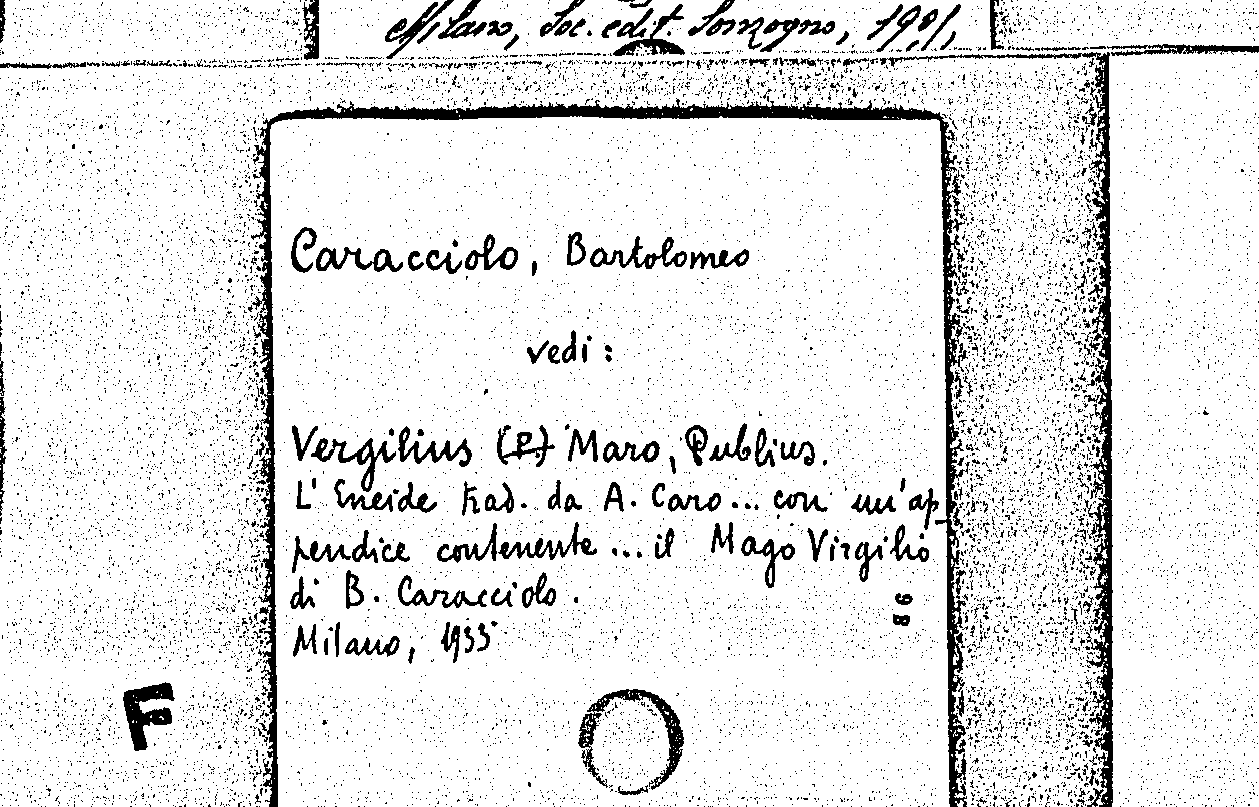 Milano, Soc. edit. Sonzogno, 1901,
Caracciolo, Bartolomeo
vedi :
Vergilius (P) Maro, Publius.
L'Eneide trad. da A. Caro... con un'ap-
pendice contenente ... il Mago Virgilio
di B. Caracciolo.
Milano, 1933
9B
F